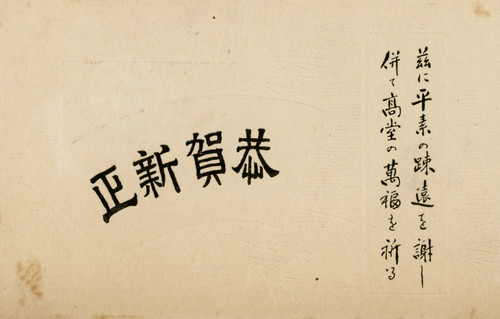 茲に平素の疎遠を謝し
併て高堂の萬福を祈る
恭賀新正